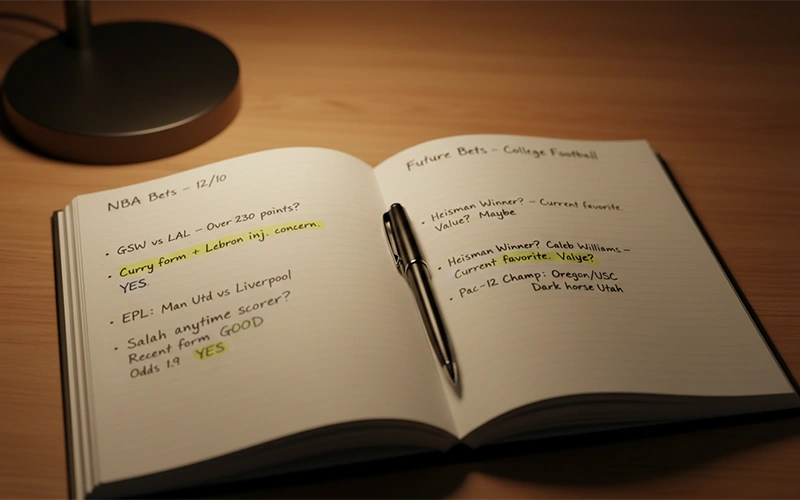 NBA Bets – 12/10
• GSW vs LAL – Over 230 points?
• Curry form + Lebron inj. concern.
YES.
• EPL: Man Utd vs Liverpool
• Salah anytime scorer?
Recent form GOOD
Odds 1.9 YES
Future Bets – College Football
• Heisman Winner? – Current favorite.
Value? Maybe
• Heisman Winner? Caleb Williams –
Current favorite. Valye?
• Pac-12 Champ: Oregon/USC
Dark horse Utah